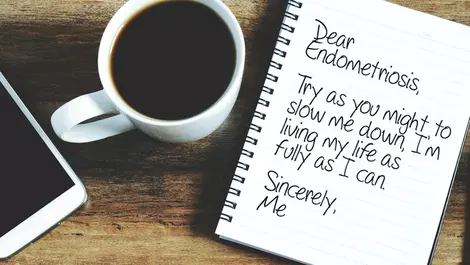 Dear
Endometriosis,
Try as you might to
slow me down, I'm
living my life as
fully as I can.
Sincerely,
Me